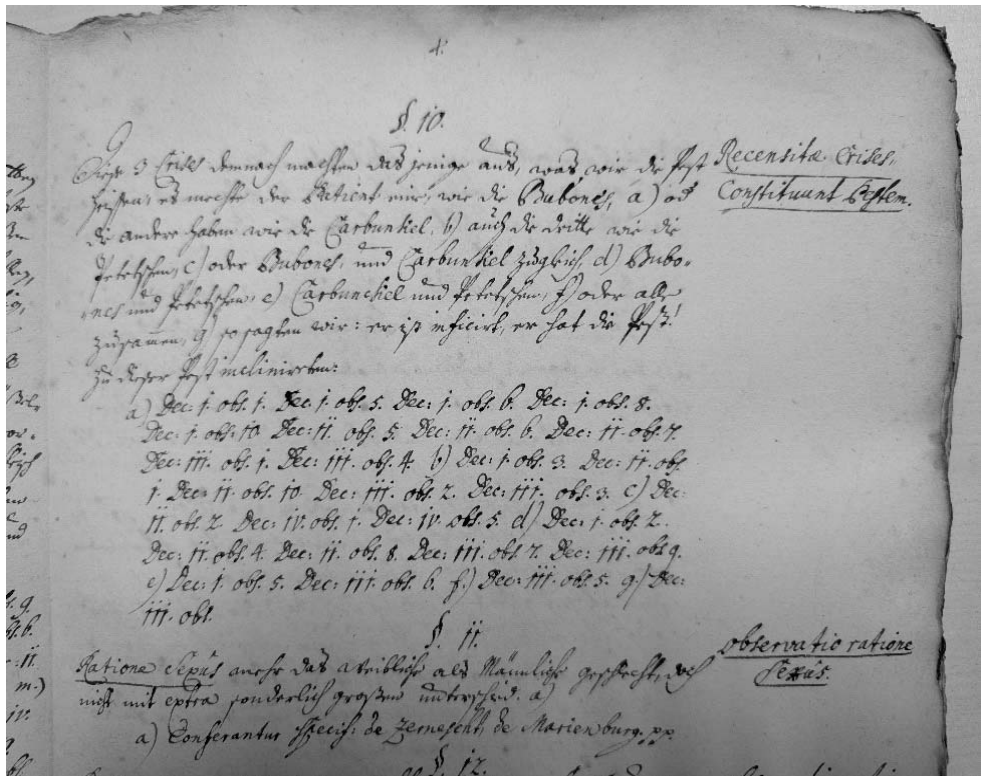 4.
§. 10.
Diese 3 Crises demnach machten das jenige aus, was wir die Pest
heissen, es mochte der Patient nur, wie die Bubones, a) od
die andere haben wie die Carbunkel, b) auch die dritte wie die
Petetschen, c) oder Bubones, und Carbunkel zugleich, d) Bubo-
nes und Petetschen, e) Carbunckel und Petetschen, f) oder alle
zusammen, g) so sagten wir: er ist inficirt, er hat die Pest!
Zu dieser Pest inclinirten:
a) Dec: i. obs. i. Dec: i. obs. 5. Dec: i. obs. 6. Dec: i. obs. 8.
Dec: i. obs: 10. Dec: ii. obs. 5. Dec: ii. obs. 6. Dec: ii. obs. 7.
Dec: iii. obs. i. Dec: iii. obs. 4. b) Dec: i. obs. 3. Dec: ii. obs
i. Dec: ii. obs. 10. Dec: iii. obs. 2. Dec: iii. obs. 3. c) Dec:
ii. obs. 2. Dec: iv. obs. i. Dec: iv. obs. 5. d) Dec: i. obs. 2.
Dec: ii. obs. 4. Dec: ii. obs. 8. Dec: iii. obs. 7. Dec: iii. obs 9.
e) Dec: i. obs. 5. Dec: iii. obs. 6. f.) Dec: iii. obs. 5. g.) Dec:
iii. obs.
Recensitæ Crises,
Constituunt Pestem.
§. 11.
Ratione Sexûs mehr das weibliche als Männliche geschlecht, doch
nicht mit extra sonderlich großen unterscheid. a)
a) Conferantur specif: de Zernescht, de Marienburg. pp.
observatio ratione
Sexûs.
§. 12.